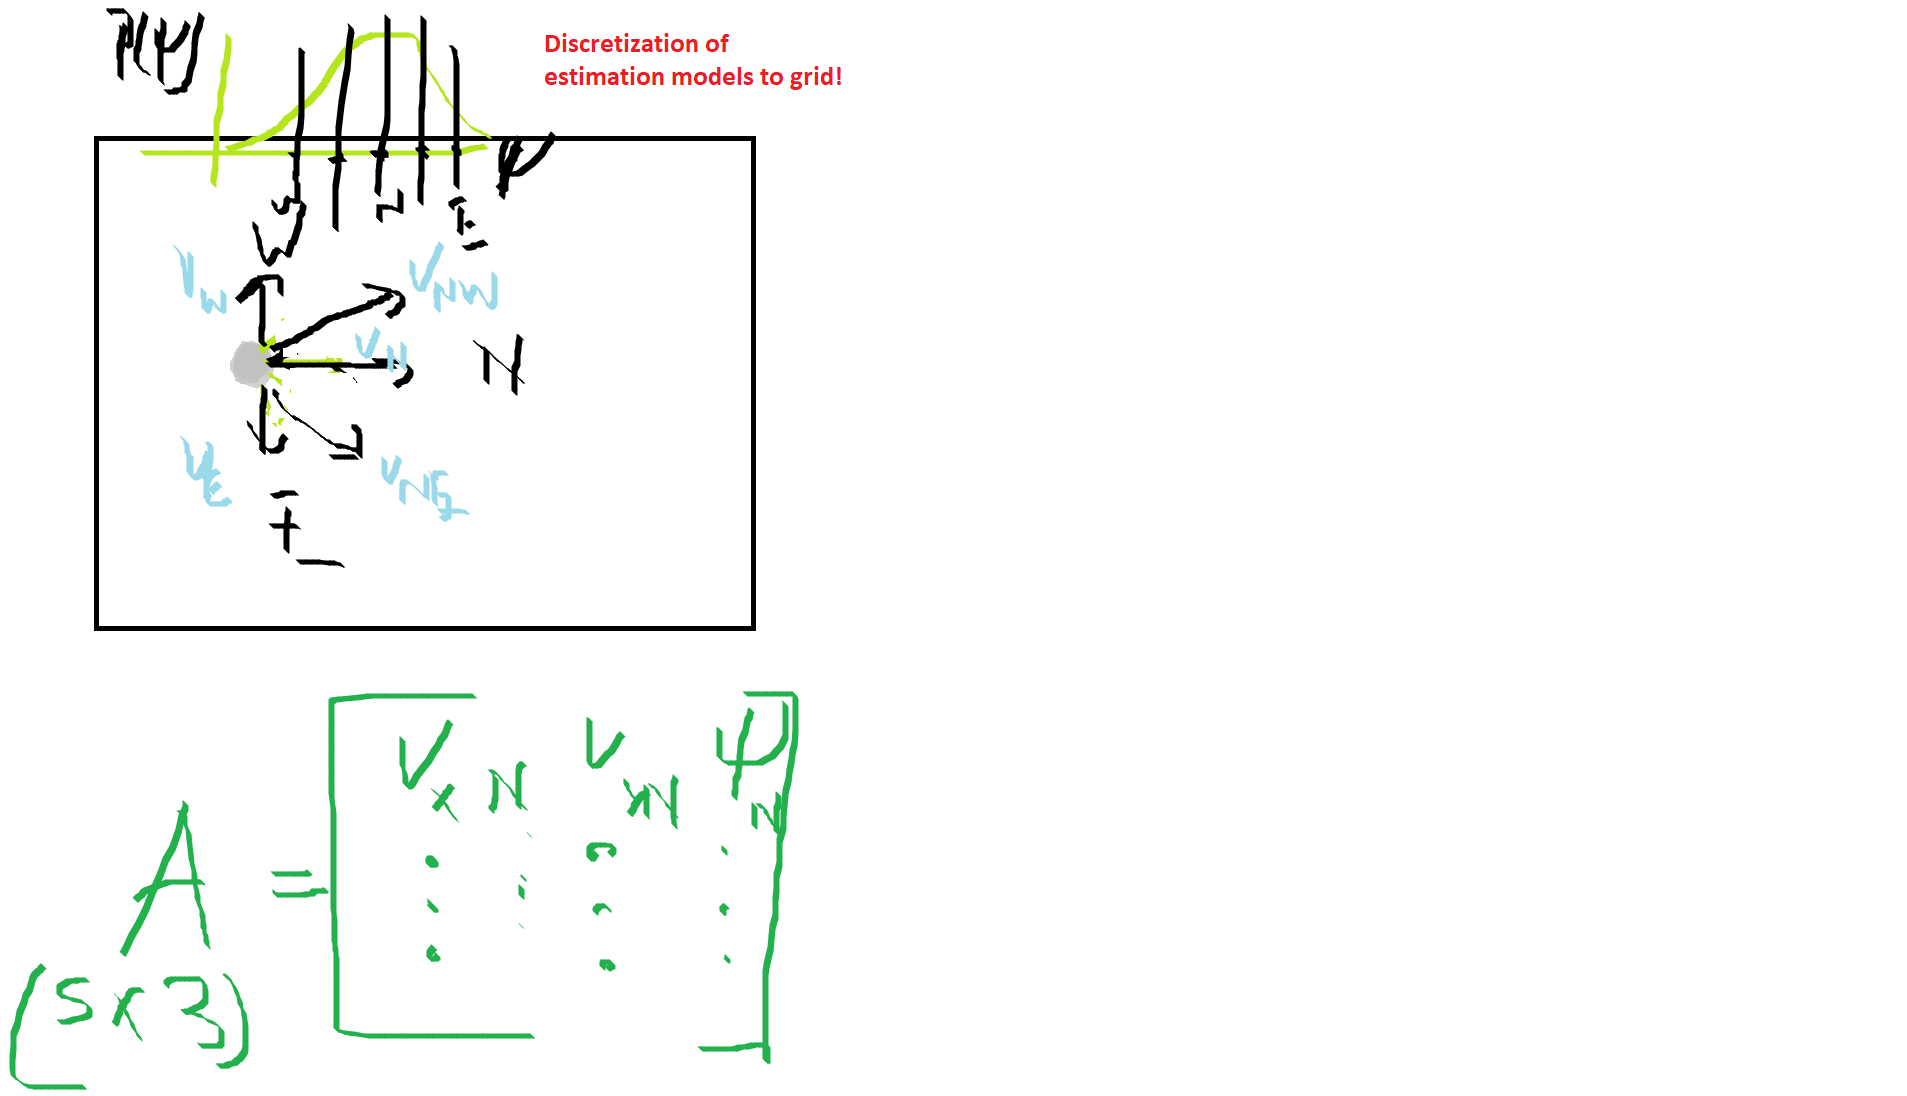 P(ψ)
Discretization of
estimation models to grid!
ψ
W
E
V_W
V_NW
V_N
N
V_E
V_NE
A = [ V_x N V_xN ψ_N
(5x3)